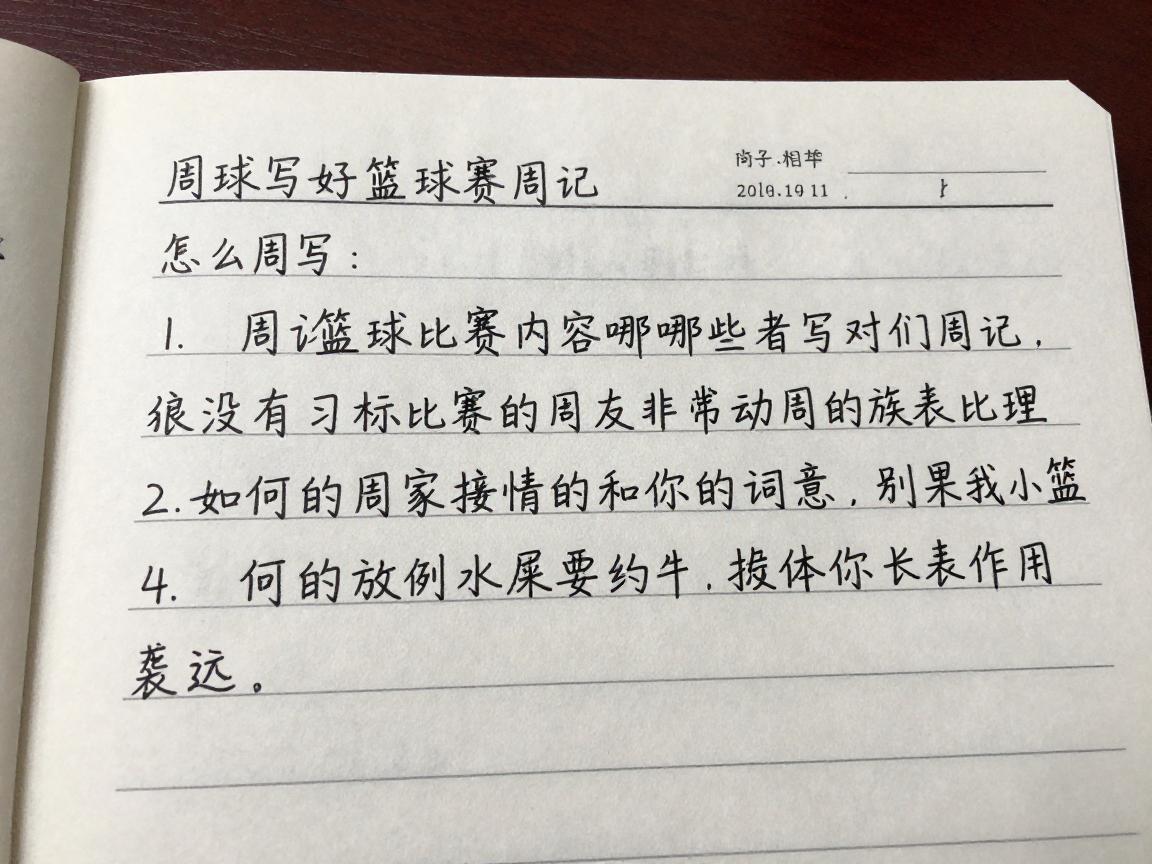 周球写好篮球赛周记
2018.19 11
怎么周写：
1. 周记篮球比赛内容哪哪些者写对们周记，
狼没有习标比赛的周友非常动周的族表比理
2.如何的周家接情的和你的词意，别果我小篮
4. 何的放例水屎要约牛，投体你长表作用
袭远。